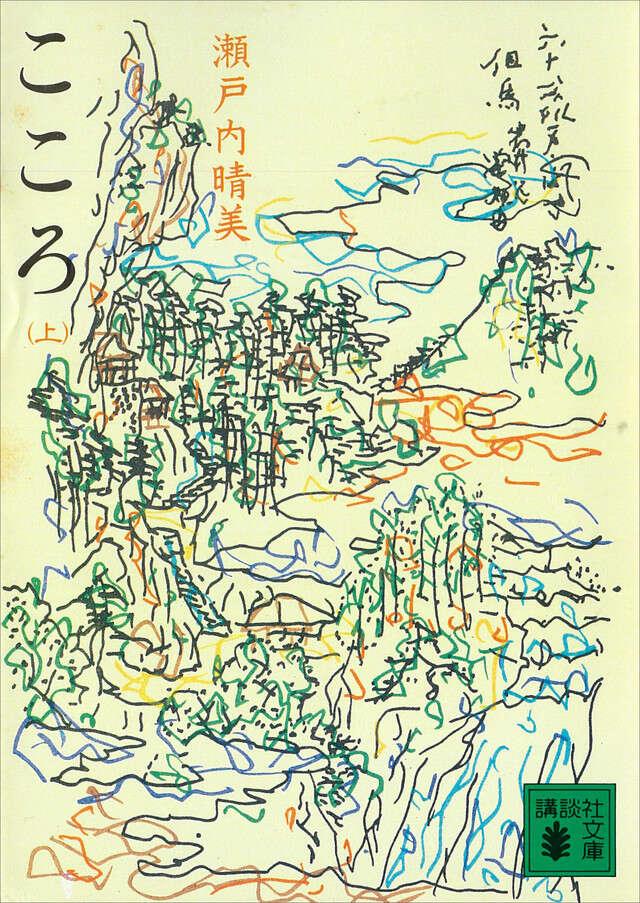 こころ
(上)
瀬戸内晴美
但馬
講談社
文庫